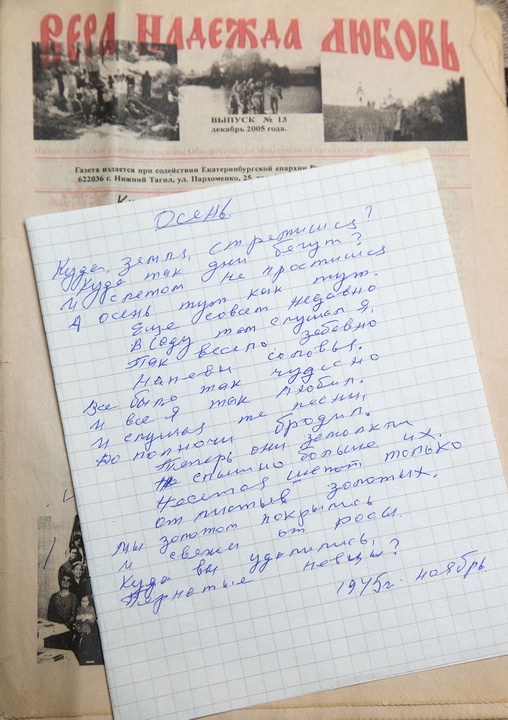 ВЕРА НАДЕЖДА ЛЮБОВЬ
ВЫПУСК № 13
декабрь 2005 года.
Газета издается при содействии Екатеринбургской епархии
622036 г. Нижний Тагил, ул. Пархоменко, 25,
Осень
Куда, Земля, стремишься?
Куда так дни бегут?
И с летом не простишься
А осень тут как тут.
Еще совсем недавно
В саду там слушал я,
Так весело, забавно
Напевы соловья.
Все было так чудесно
И все я так любил.
И слушая те песни,
До полночи бродил.
Теперь они замолкли
Не слышно больше их.
Несется шепот только
От листьев золотых.
Мы золотом покрылись
И свежи от росы.
Куда вы удалились,
Пернатые певцы?
1945г. ноябрь.